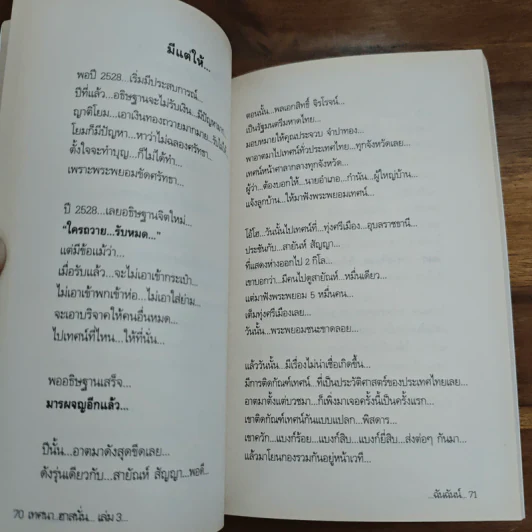 มีแต่ให้...
พอปี 2528...เริ่มมีประสบการณ์...
ปีที่แล้ว...อธิษฐานจะไม่รับเงิน...มีปัญหามาก...
ญาติโยม...เอาเงินทองถวายมากมาย...
โยมก็มีปัญหา...หาว่าไม่ฉลองศรัทธา...
ตั้งใจจะทำบุญ...ก็ไม่ได้ทำ...
เพราะพระพยอมขัดศรัทธา...
ปี 2528...เลยอธิษฐานจิตใหม่...
"ใครถวาย...รับหมด..."
แต่มีข้อแม้ว่า...
เมื่อรับแล้ว...จะไม่เอาเข้ากระเป๋า...
ไม่เอาเข้าพกเข้าห่อ...ไม่เอาใส่ย่าม...
จะเอาบริจาคให้คนอื่นหมด...
ไปเทศน์ที่ไหน...ให้ที่นั่น...
พออธิษฐานเสร็จ...
มารผจญอีกแล้ว...
ปีนั้น...อาตมาดังสุดขีดเลย...
ดังรุ่นเดียวกับ...สายัณห์ สัญญา...พอดี...
70 เทศนา...ฮาสนั่น... เล่ม 3...
ตอนนั้น...พลเอกสิทธิ์ จิรโรจน์...
เป็นรัฐมนตรีมหาดไทย...
มอบหมายให้คุณประจวบ จำปาทอง...
พาอาตมาไปเทศน์ทั่วประเทศไทย...ทุกจังหวัดเลย...
เทศน์หน้าศาลากลางทุกจังหวัด...
ผู้ว่า...ต้องบอกให้...นายอำเภอ...กำนัน...ผู้ใหญ่บ้าน...
แจ้งลูกบ้าน...ให้มาฟังพระพยอมเทศน์...
โอ้โฮ...วันนั้นไปเทศน์ที่...ทุ่งศรีเมือง...อุบลราชธานี...
ประชันกับ...สายัณห์ สัญญา...
ที่แสดงห่างออกไป 2 กิโล...
เขาบอกว่า...มีคนไปดูสายัณห์...หมื่นเดียว...
แต่มาฟังพระพยอม 5 หมื่นคน...
เต็มทุ่งศรีเมืองเลย...
วันนั้น...พระพยอมชนะขาดลอย...
แล้ววันนั้น...มีเรื่องไม่น่าเชื่อเกิดขึ้น...
มีการติดกัณฑ์เทศน์...ที่เป็นประวัติศาสตร์ของประเทศไทยเลย...
อาตมาตั้งแต่บวชมา...ก็เพิ่งมาเจอครั้งนี้เป็นครั้งแรก...
เขาติดกัณฑ์เทศน์กันแบบแปลก...พิสดาร...
เขาควัก...แบงก์ร้อย...แบงก์สิบ...แบงก์ยี่สิบ...ส่งต่อๆ กันมา...
แล้วมาโยนกองรวมกันอยู่หน้าเวที...
...ฉันฉันน์... 71